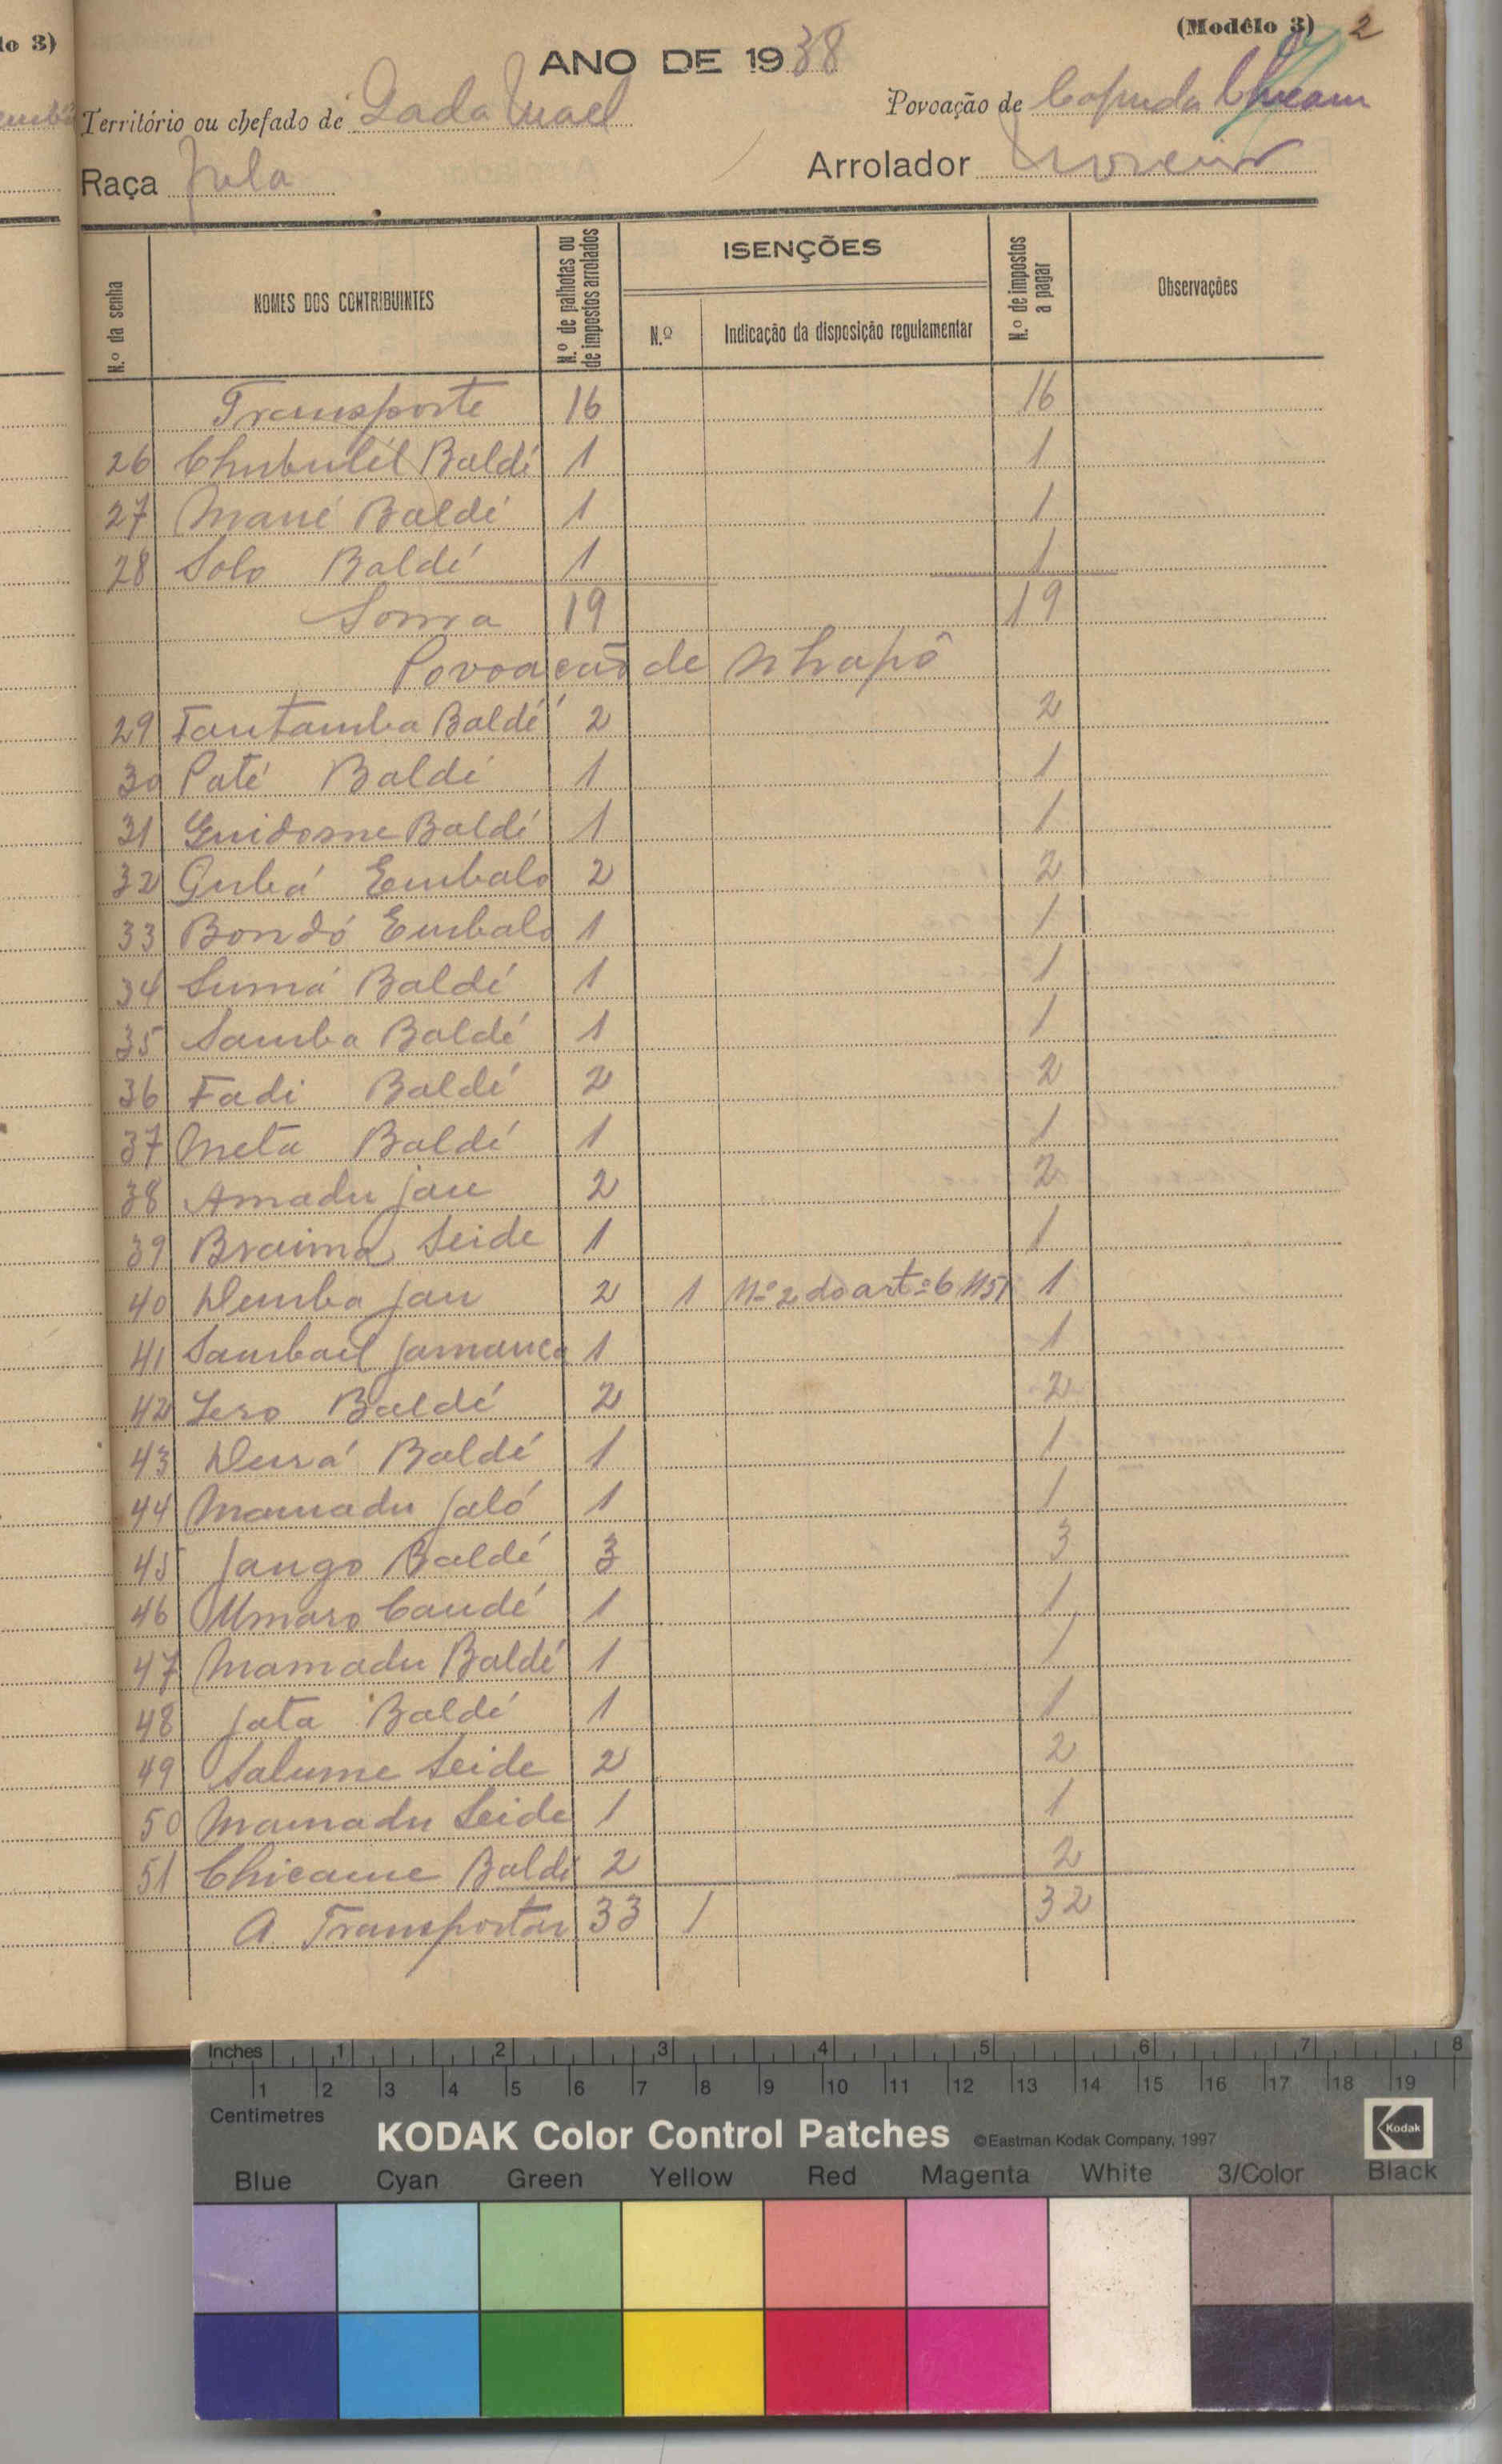 lo 3)
(Modêlo 3) 2
ANO DE 1938
Território ou chefado de Gada Mael Povoação de Capuda
Raça Fula Arrolador
N.º da senha NOMES DOS CONTRIBUINTES N.º de palhotas ou de impostos arrolados ISENÇÕES N.º Indicação da disposição regulamentar N.º de impostos a pagar Observações
Transporte 16 16
26 Chubulél Baldé 1 1
27 Mané Baldé 1 1
28 Solo Baldé 1 1
Soma 19 19
Povoação de Nhapô
29 Fantamba Baldé 2 2
30 Paté Baldé 1 1
31 Guidosne Baldé 1 1
32 Gubá Embalo 2 2
33 Bondó Embalo 1 1
34 Sumá Baldé 1 1
35 Samba Baldé 1 1
36 Fadi Baldé 2 2
37 Meta Baldé 1 1
38 Amadu Jau 2 2
39 Braima Seide 1 1
40 Demba Jau 2 1 Nº 2 do artº 6 1
41 Sambael Jamanca 1 1
42 Lero Baldé 2 2
43 Durá Baldé 1 1
44 Mamadu Jaló 1 1
45 Jango Baldé 3 3
46 Umaro Candé 1 1
47 Mamadu Baldé 1 1
48 Jata Baldé 1 1
49 Salume Seide 2 2
50 Mamadu Seide 1 1
51 Chicame Baldé 2 2
A Transportar 33 1 32
Inches 1 2 3 4 5 6 7 8
1 2 3 4 5 6 7 8 9 10 11 12 13 14 15 16 17 18 19
Centimetres
KODAK Color Control Patches ©Eastman Kodak Company, 1997 Kodak
Blue Cyan Green Yellow Red Magenta White 3/Color Black